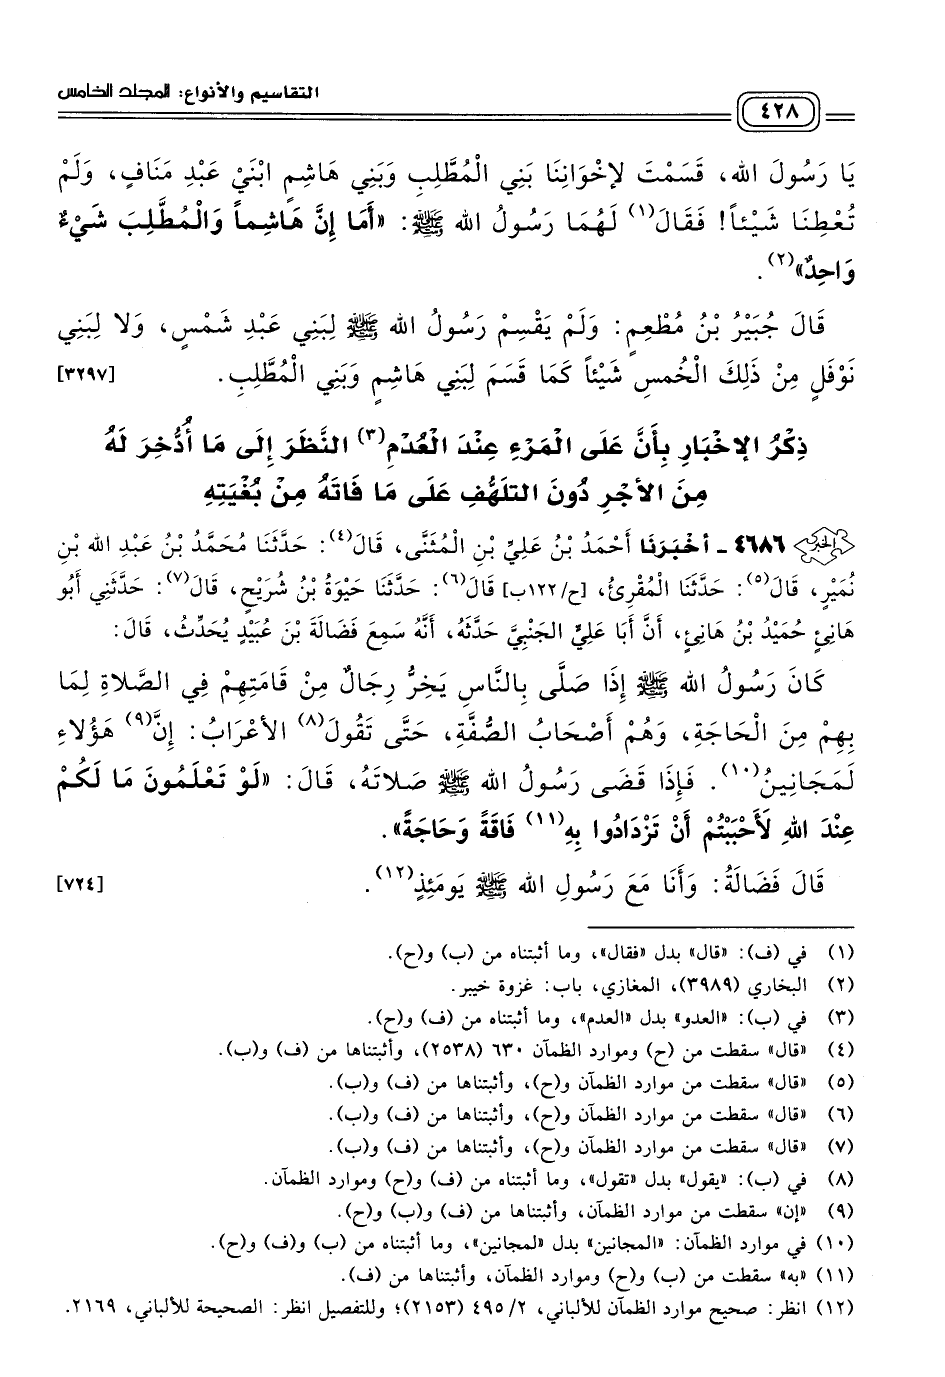 التقاسيم والأنواع: المجلد الخامس
٤٢٨
يَا رَسُولَ الله، قَسَمْتَ لإخْوَانِنَا بَنِي الْمُطَّلِبِ وَبَنِي هَاشِمٍ ابْنَيْ عَبْدِ مَنَافٍ، وَلَمْ
تُعْطِنَا شَيْئاً! فَقَالَ(١) لَهُمَا رَسُولُ الله ﷺ: «أَمَا إِنَّ هَاشِماً وَالْمُطَّلِبَ شَيْءٌ
وَاحِدٌ»(٢).
قَالَ جُبَيْرُ بْنُ مُطْعِمٍ: وَلَمْ يَقْسِمْ رَسُولُ الله ﷺ لِبَنِي عَبْدِ شَمْسٍ، وَلا لِبَنِي
نَوْفَلٍ مِنْ ذَلِكَ الْخُمسِ شَيْئاً كَمَا قَسَمَ لِبَنِي هَاشِمٍ وَبَنِي الْمُطَّلِبِ. [٣٢٩٧]
ذِكْرُ الإخْبَارِ بِأَنَّ عَلَى الْمَرْءِ عِنْدَ الْعُدْمِ(٣) النَّظَرَ إِلَى مَا أُدُّخِرَ لَهُ
مِنَ الأَجْرِ دُونَ التلَهُّفِ عَلَى مَا فَاتَهُ مِنْ بُغْيَتِهِ
الخبر ٤٦٨٦ ـ أخْبَرَنَا أَحْمَدُ بْنُ عَلِيِّ بْنِ الْمُثَنَّى، قَالَ(٤): حَدَّثَنَا مُحَمَّدُ بْنُ عَبْدِ الله بْنِ
نُمَيْرٍ، قَالَ(٥): حَدَّثَنَا الْمُقْرِئُ، [ح/١٢٢ب] قَالَ(٦): حَدَّثَنَا حَيْوَةُ بْنُ شُرَيْحٍ، قَالَ(٧): حَدَّثَنِي أَبُو
هَانِئٍ حُمَيْدُ بْنُ هَانِئٍ، أَنَّ أَبَا عَلِيٍّ الْجَنْبِيَّ حَدَّثَهُ، أَنَّهُ سَمِعَ فَضَالَةَ بْنَ عُبَيْدٍ يُحَدِّثُ، قَالَ:
كَانَ رَسُولُ الله ﷺ إِذَا صَلَّى بِالنَّاسِ يَخِرُّ رِجَالٌ مِنْ قَامَتِهِمْ فِي الصَّلاةِ لِمَا
بِهِمْ مِنَ الْحَاجَةِ، وَهُمْ أَصْحَابُ الصُّفَّةِ، حَتَّى تَقُولَ(٨) الأعْرَابُ: إِنَّ(٩) هَؤُلاءِ
لَمَجَانِينُ(١٠). فَإِذَا قَضَى رَسُولُ الله ﷺ صَلاتَهُ، قَالَ: «لَوْ تَعْلَمُونَ مَا لَكُمْ
عِنْدَ اللهِ لَأَحْبَبْتُمْ أَنْ تَزْدَادُوا بِهِ(١١) فَاقَةً وَحَاجَةً».
قَالَ فَضَالَةُ: وَأَنَا مَعَ رَسُولِ الله ﷺ يَومَئِذٍ(١٢). [٧٢٤]
(١) في (ف): «قال» بدل «فقال»، وما أثبتناه من (ب) و(ح).
(٢) البخاري (٣٩٨٩)، المغازي، باب: غزوة خيبر.
(٣) في (ب): «العدو» بدل «العدم»، وما أثبتناه من (ف) و(ح).
(٤) «قال» سقطت من (ح) وموارد الظمآن ٦٣٠ (٢٥٣٨)، وأثبتناها من (ف) و(ب).
(٥) «قال» سقطت من موارد الظمآن و(ح)، وأثبتناها من (ف) و(ب).
(٦) «قال» سقطت من موارد الظمآن و(ح)، وأثبتناها من (ف) و(ب).
(٧) «قال» سقطت من موارد الظمآن و(ح)، وأثبتناها من (ف) و(ب).
(٨) في (ب): «يقول» بدل «تقول»، وما أثبتناه من (ف) و(ح) وموارد الظمآن.
(٩) «إن» سقطت من موارد الظمآن، وأثبتناها من (ف) و(ب) و(ح).
(١٠) في موارد الظمآن: «المجانين» بدل «لمجانين»، وما أثبتناه من (ب) و(ف) و(ح).
(١١) «به» سقطت من (ب) و(ح) وموارد الظمآن، وأثبتناها من (ف).
(١٢) انظر: صحيح موارد الظمآن للألباني، ٢/ ٤٩٥ (٢١٥٣)؛ وللتفصيل انظر: الصحيحة للألباني، ٢١٦٩.